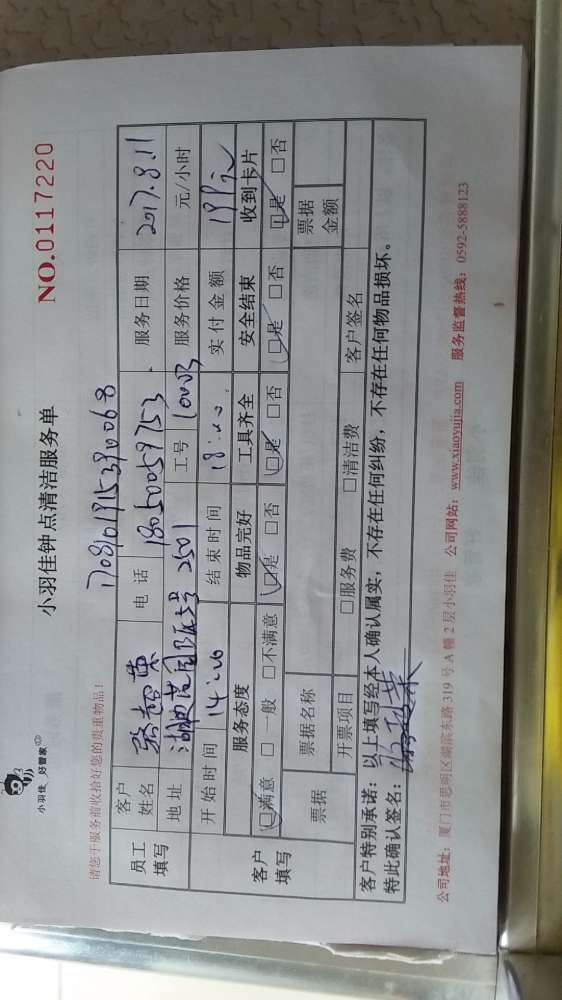 小羽佳 好管家
小羽佳钟点清洁服务单
NO.0117220
请您于服务前收拾好您的贵重物品！
员工填写
客户姓名 张超英 电话 18050059753 服务日期 2017.8.11
地址 2501 工号 服务价格 元/小时
开始时间 14:00 结束时间 18:00 实付金额 199元
客户填写
服务态度 物品完好 工具齐全 安全结束 收到卡片
☑满意 □一般 □不满意 ☑是 □否 ☑是 □否 ☑是 □否 ☑是 □否
票据 票据名称 票据金额
开票项目 □服务费 □清洁费 客户签名
客户特别承诺：以上填写经本人确认属实，不存在任何纠纷，不存在任何物品损坏。
特此确认签名：
公司地址：厦门市思明区湖滨东路319号A幢2层小羽佳 公司网站：www.xiaoyujia.com 服务监督热线：0592-5888123